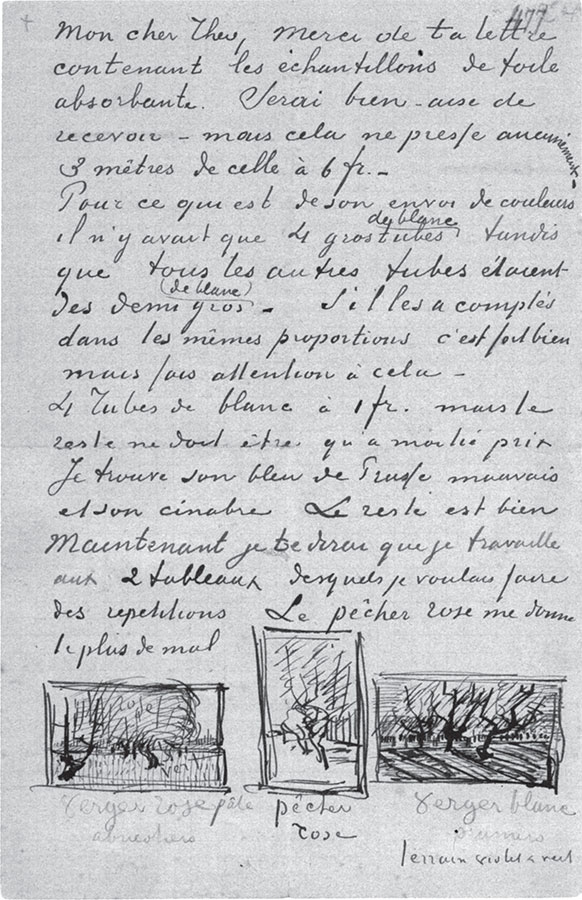 477
Mon cher Theo, Merci de ta lettre
contenant les échantillons de toile
absorbante. Serai bien-aise de
recevoir – mais cela ne presse aucunement –
3 mètres de celle à 6 fr. –
Pour ce qui est de son envoi de couleurs
il n'y avait que 4 gros tubes de blanc, tandis
que tous les autres tubes étaient
des demi gros (de blanc) – S'il les a comptés
dans les mêmes proportions c'est fort bien
mais fais attention à cela –
4 Tubes de blanc à 1 fr. mais le
reste ne doit être qu'a moitié prix
Je trouve son bleu de Prusse mauvais
et son cinabre Le reste est bien
Maintenant je te dirai que je travaille
aux 2 tableaux desquels je voulais faire
des repetitions Le pêcher rose me donne
le plus de mal
rose
vert
verger rose pâle
abricotiers
pêcher
rose
Verger blanc
pruniers
terrain violet & vert